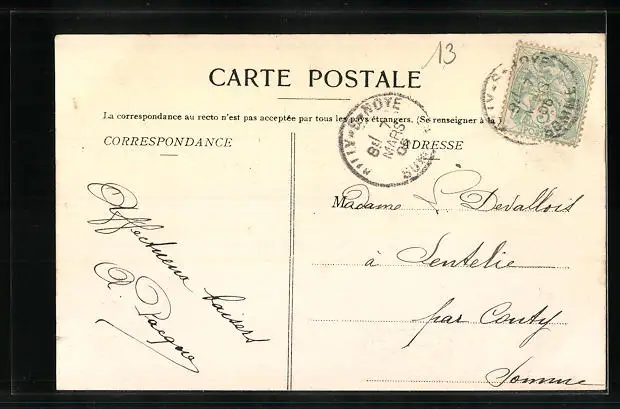 13
CARTE POSTALE
La correspondance au recto n'est pas acceptée par tous les pays étrangers. (Se renseigner à la
CORRESPONDANCE
ADRESSE
AILLY-S-NOYE
7
MARS
SOMME
Madame P. Devallois
à Sentelie
par Conty
Somme
Affectueux baisers